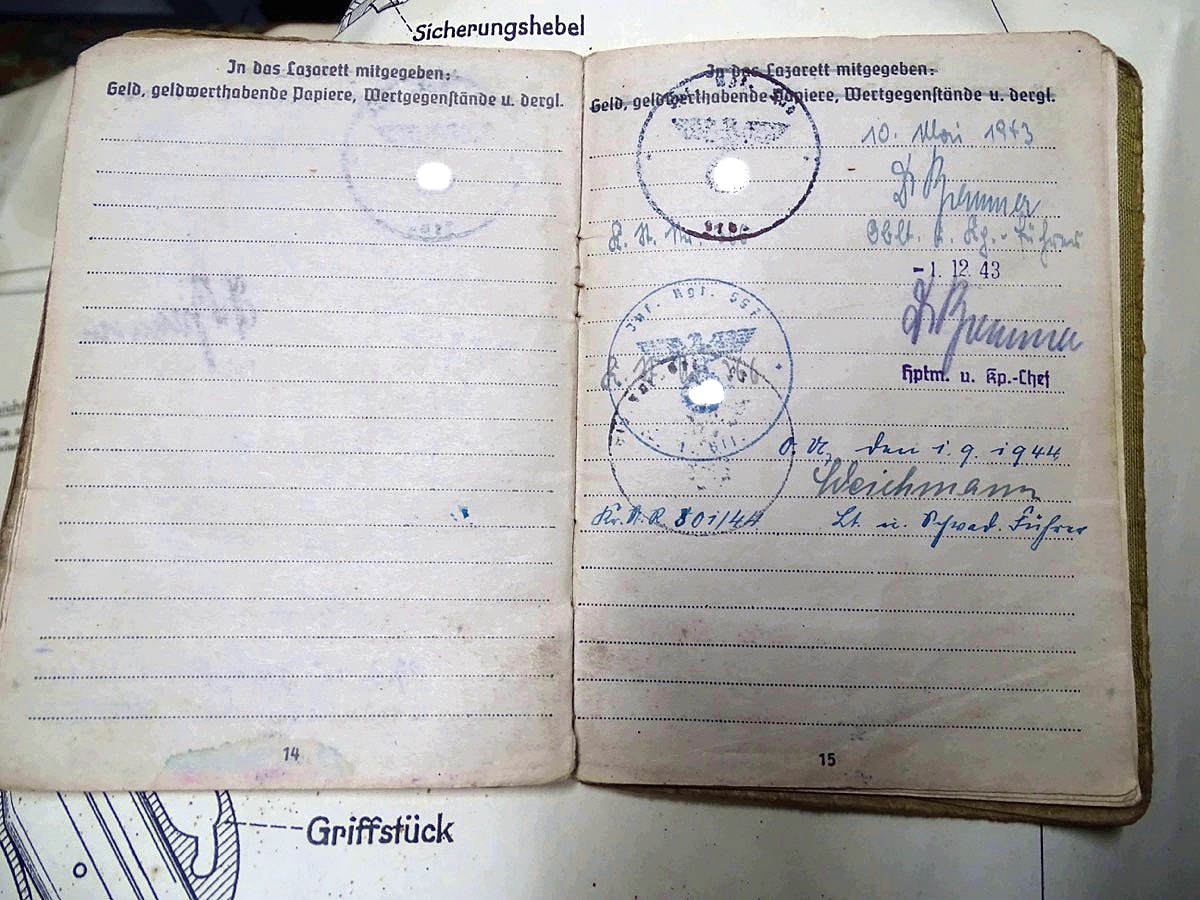 Sicherungshebel
In das Lazarett mitgegeben:
Geld, geldwerthabende Papiere, Wertgegenstände u. dergl.
14
In das Lazarett mitgegeben:
Geld, geldwerthabende Papiere, Wertgegenstände u. dergl.
10. Mai 1943
Dr Bremmer
Oblt. u. Kp.-Führer
-1. 12. 43
Dr Bremmer
Hptm. u. Kp.-Chef
Inf. Rgt. 557
O. U., den 1. 9. 1944
Weichmann
Lt. u. Schwad. Führer
15
Griffstück